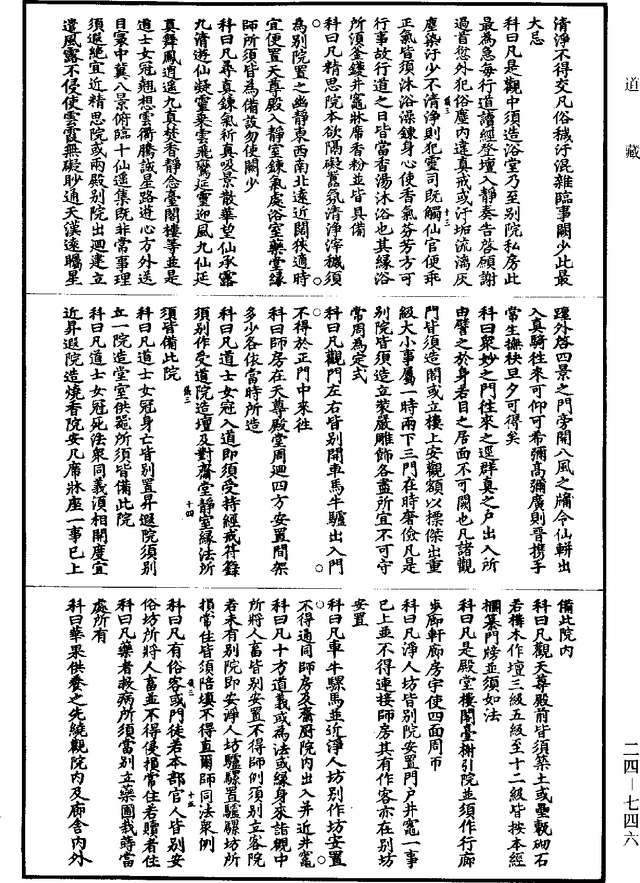 道藏
清淨不得交凡俗穢汙混雜臨事闕少此最
大忌
科曰凡是觀中須造浴堂乃至別院私房此
最為急每行道讀經登壇入靜奏告啓願謝
過首愆外犯俗塵內違真戒或汙垢流漓灰
塵染汗少不清淨則犯靈司既觸仙官便乖
正氣皆須沐浴澡鍊身心使香氣芬芳方可
行事故行道之日皆當香湯沐浴也其緣浴
所須釜鑊井竈牀席香粉並皆具備
科曰凡精思院本欲隔礙囂氛清淨滓穢須
為別院置之幽靜東西南北遠近闊狹適時
宜便置天尊殿入靜室鍊氣處浴室藥堂緣
師所須皆為備設勿使闕少
科曰凡尋真鍊氣祈真吸景散華望仙承露
九清遊仙凝靈乘雲飛鸞延靈迎風九仙延
真舞鳳逍遙九真焚香靜念臺閣樓等並是
道士女冠翹想雲衢騰誠星路遊心方外送
目寰中冀八景俯臨十仙遥集既非常事理
須遐絶宜近精思院或兩殿別院出迴建立
遣風露不侵使雲霞無礙眇通天漢遠矚星
躔外啓四景之門旁開八風之牖令仙軿出
入真騎往來可仰可希彌高彌廣則晉攜手
常生撫袂旦夕可得矣
科曰衆妙之門往來之逕群真之户出入所
由譬之於身若目之居面不可闕也凡諸觀
門皆須造閣或立樓上安觀額以摽傑出重
級大小事屬一時兩下三門在時奢儉凡是
別院皆須造立裝嚴雕飾各盡所宜不可守
常周為定式
科曰凡觀門左右皆別開車馬牛驢出入門
不得於正門中來往
科曰師房在天尊殿堂周迴四方安置間架
多少各依當時所造
科曰凡道士女冠入道即須受持經戒符籙
須別作受道院造壇及對齋堂靜室緣法所
須皆備此院
科曰凡道士女冠身亡皆別置昇遐院須別
立一院造堂室供器所須皆備此院
科曰凡道士女冠死法衆同義須相開度宜
近昇遐院造燒香院安几席牀座一事已上
備此院內
科曰凡觀天尊殿前皆須築土或壘甎砌石
若構木作壇三級五級至十二級皆按本經
欄纂門牓並須如法
科曰凡是殿堂樓閣臺榭引院並須作行廊
步廊軒廊房宇使四面周帀
科曰凡淨人坊皆別院安置門户井竈一事
已上並不得連接師房其有作客亦在別坊
安置
科曰凡車牛騾馬並近淨人坊別作坊安置
不得通同師房及齋厨院內出入并近井竈
科曰凡十方道義或為法或緣身來諸觀中
所將人畜皆別安置不得師例須別立客院
若未有別院即安淨人坊驢騾置驢騾坊所
損常住皆須陪填不得直爾師同法衆例
科曰凡有俗客或門徒若本部官人皆別安
俗坊所將人畜並不得侵損常住若贖者住
科曰凡藥者救病所須當別立藥圃栽蒔當
處所有
科曰華果供養之先繞觀院內及廊舍內外
二四－七四六